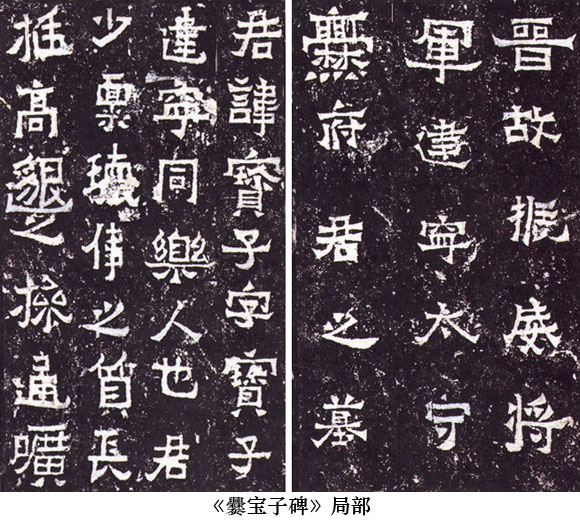 晉故振威將
軍建寧太守
爨府君之墓
君諱寶子字寶子
建寧同樂人也君
少稟瓌偉之質長
挺高邈之操通曠
《爨宝子碑》局部